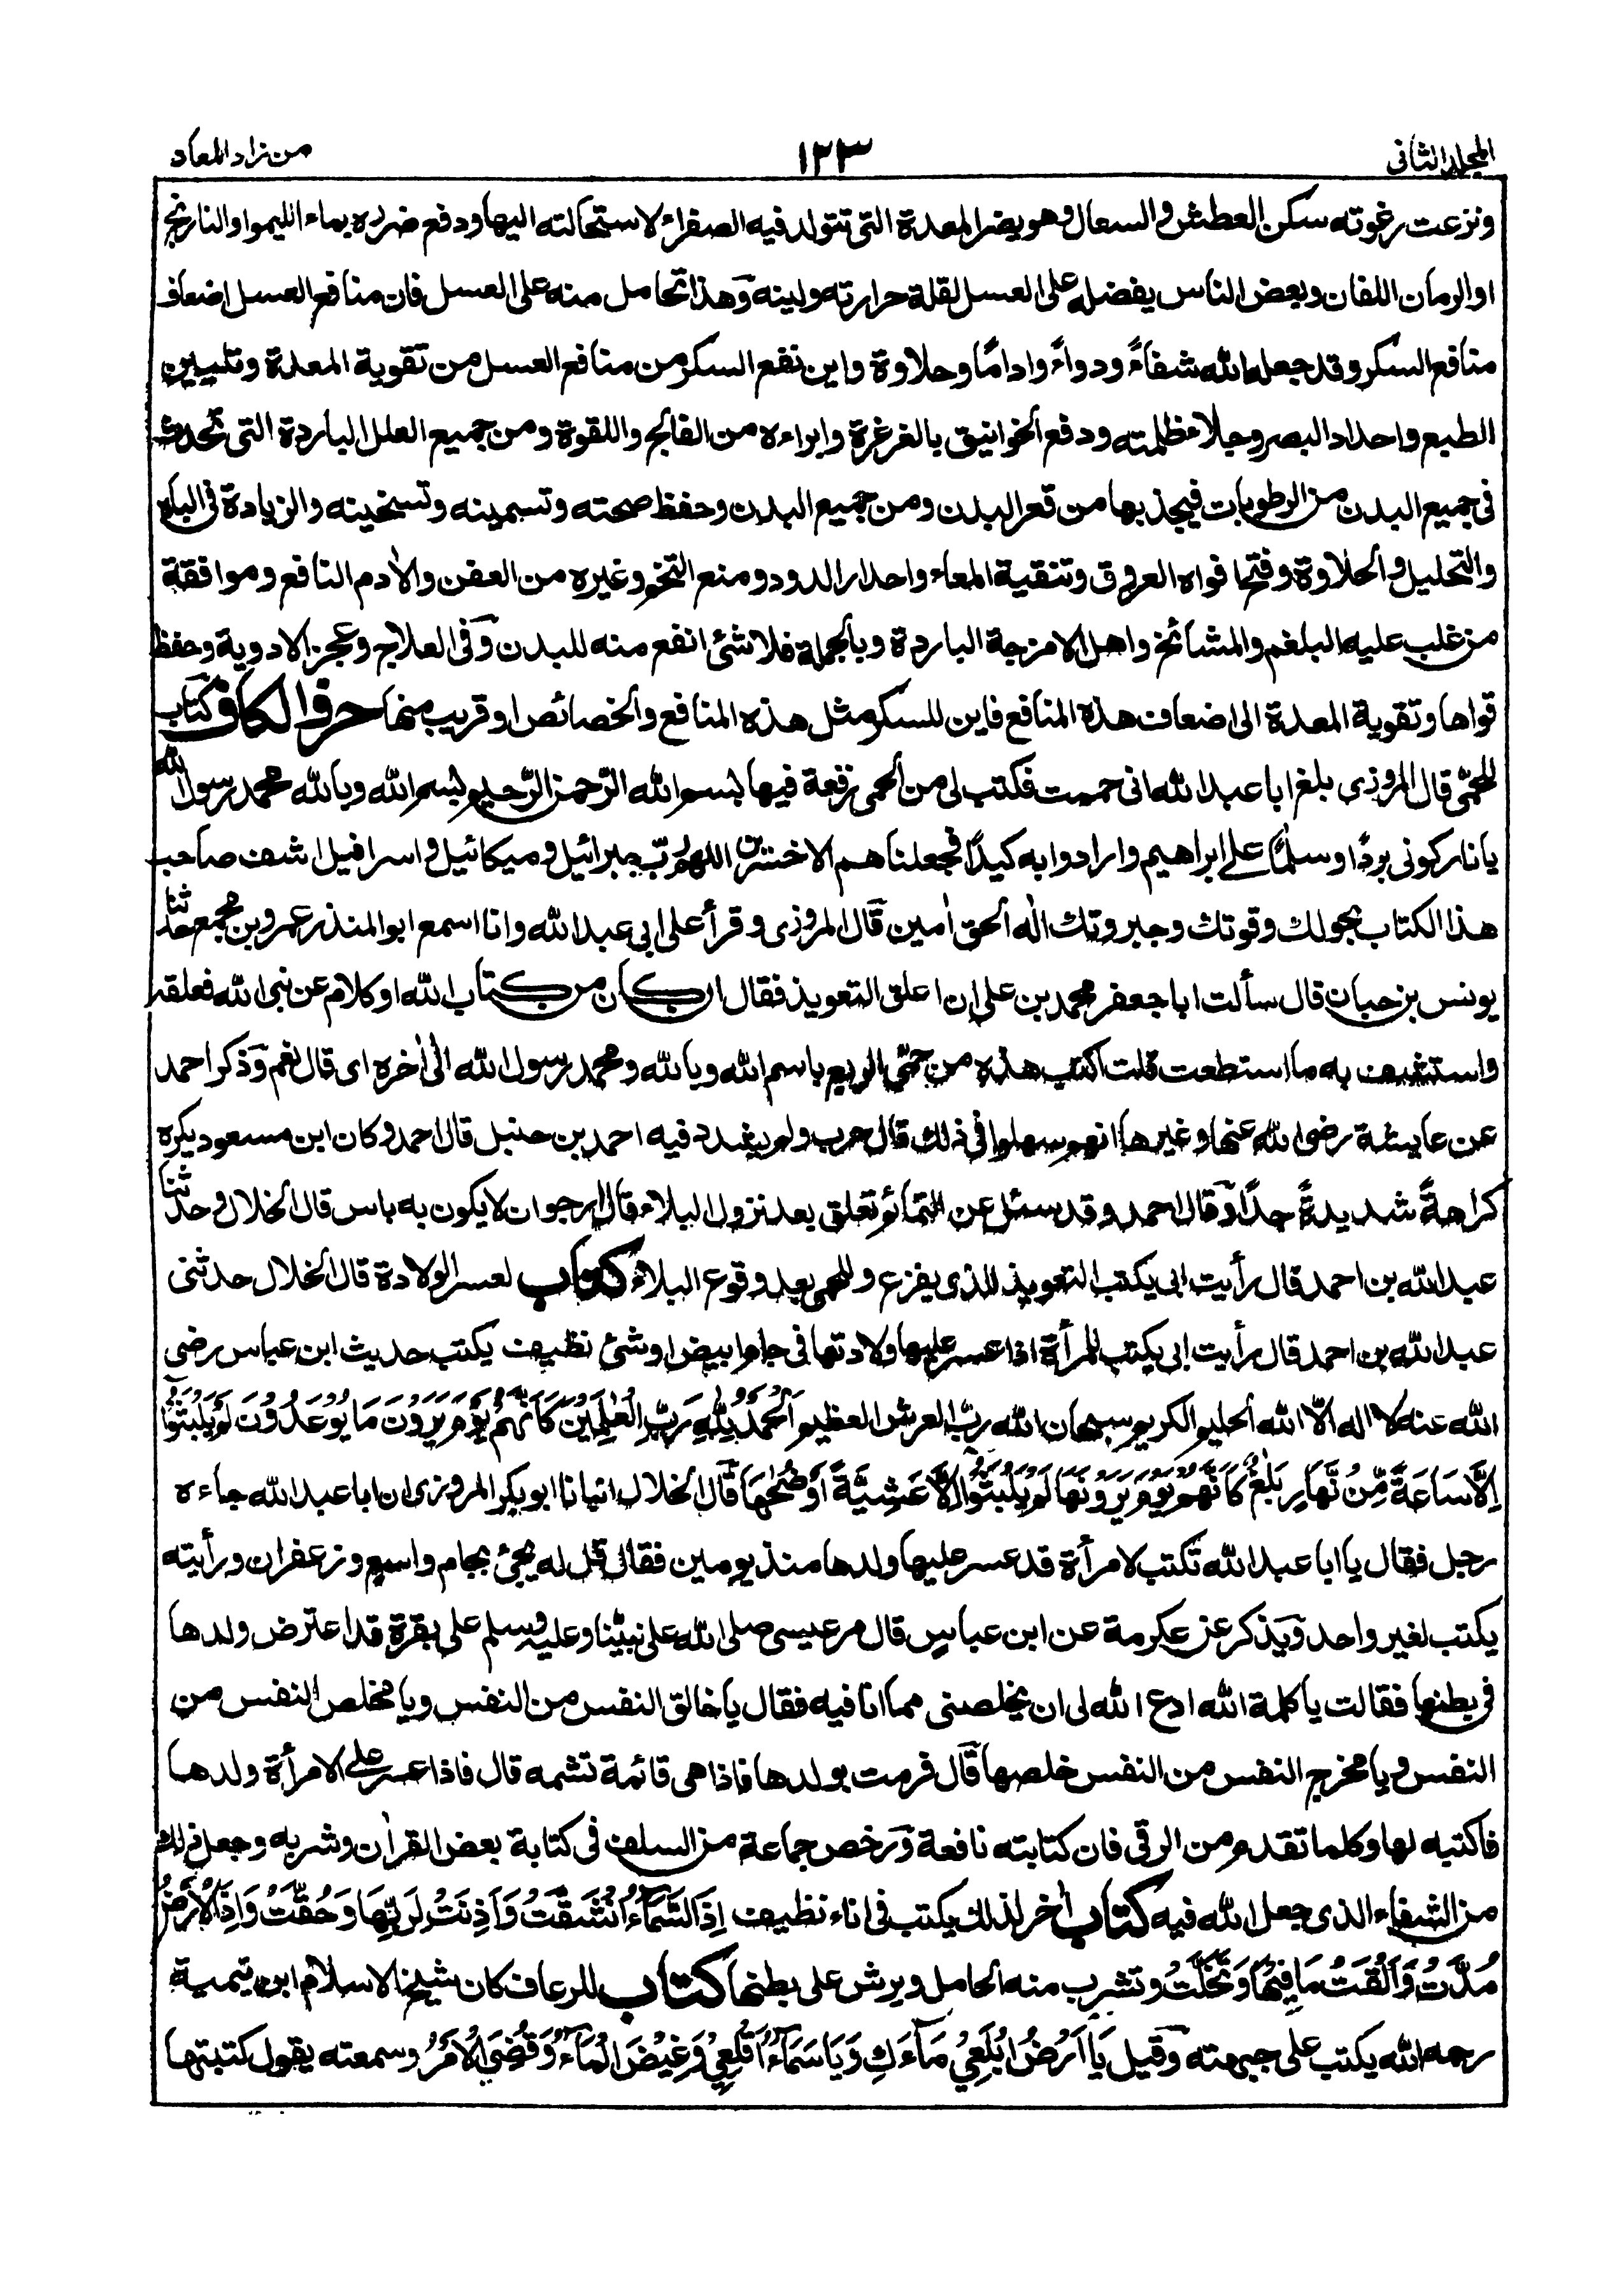 المجلد الثاني
١٢٣
من زاد المعاد
ونزعت رغوته سكن العطش والسعال وهو يضر المعدة التي تتولد فيه الصفراء لاستحالته اليها ودفع ضرره بماء الليموا والنارنج
او الرمان اللفان وبعض الناس يفضله على العسل لقلة حرارته ولينه وهذا تحامل منه على العسل فان منافع العسل اضعاف
منافع السكر وقد جعله الله شفاءً ودواءً واداماً وحلاوة واين نفع السكر من منافع العسل من تقوية المعدة وتليين
الطبع واحداد البصر وجلاء ظلمته ودفع الخوانيق بالغرغرة وابراءه من الفالج واللقوة ومن جميع العلل الباردة التي تحدث
في جميع البدن من الرطوبات فيجذبها من قعر البدن ومن جميع البدن وحفظ صحته وتسمينه وتسخينه والزيادة في الباه
والتحليل والحلاوة وفتح افواه العروق وتنقية المعاء واحدار الدود ومنع التخم وغيره من العفن والأدم النافع وموافقة
من غلب عليه البلغم والمشائخ واهل الامزجة الباردة وبالجملة فلا شئ انفع منه للبدن وفي العلاج وعجز الادوية وحفظ
قواها وتقوية المعدة الى اضعاف هذه المنافع فاين للسكر مثل هذه المنافع والخصائص او قريب منها حرف الكاف كتاب
للحمّى قال المروزي بلغ ابا عبد الله اني حممت فكتب لي من الحمى رقعة فيها بسم الله الرّحمن الرّحيم بسم الله وبالله محمد رسول الله
يا نار كوني برداً وسلماً على ابراهيم وارادوا به كيداً فجعلناهم الاخسرين اللهم ربّ جبرائيل وميكائيل واسرافيل اشف صاحب
هذا الكتاب بحولك وقوتك وجبروتك اله الحق امين قال المروزي وقرأ على ابي عبد الله وانا اسمع ابو المنذر عمرو بن مجمع حدثنا
يونس بن حبان قال سألت ابا جعفر محمد بن علي ان اعلق التعويذ فقال ان كان من كتاب الله او كلام عن نبي الله فعلقه
واستشف به ما استطعت قلت اكتب هذه من حمّى الربع باسم الله وبالله ومحمد رسول الله الى اخره اى قال نعم وذكر احمد
عن عايشة رضي الله عنها وغيرها انهم سهلوا في ذلك قال حرب ولم يشدد فيه احمد بن حنبل قال احمد وكان ابن مسعود يكره
كراهةً شديدةً جدّاً وقال احمد وقد سئل عن التمائم تعلق بعد نزول البلاء قال ارجوان لا يكون به باس قال الخلال وحدثنا
عبد الله بن احمد قال رأيت ابي يكتب التعويذ للذي يفزع وللحمى بعد وقوع البلاء كتاب لعسر الولادة قال الخلال حدثني
عبد الله بن احمد قال رأيت ابي يكتب للمرأة اذا عسر عليها ولادتها في جام ابيض او شئ نظيف يكتب حديث ابن عباس رضي
الله عنه لا اله الّا الله الحليم الكريم سبحان الله ربّ العرش العظيم اَلْحَمْدُ لِلّٰهِ رَبِّ الْعٰلَمِيْنَ كَاَنَّهُمْ يَوْمَ يَرَوْنَ مَا يُوْعَدُوْنَ لَمْ يَلْبَثُوْا
اِلَّا سَاعَةً مِّنْ نَّهَارٍ بَلٰغٌ كَاَنَّهُمْ يَوْمَ يَرَوْنَهَا لَمْ يَلْبَثُوْا اِلَّا عَشِيَّةً اَوْ ضُحٰهَا قال الخلال انبانا ابو بكر المروزي ان ابا عبد الله جاءه
رجل فقال يا ابا عبد الله تكتب لامرأة قد عسر عليها ولدها منذ يومين فقال قل له يجئ بجام واسع وزعفران ورأيته
يكتب لغير واحد ويذكر عن عكرمة عن ابن عباس قال مر عيسى صلى الله على نبيّنا وعليه وسلم على بقرة قد اعترض ولدها
في بطنها فقالت يا كلمة الله ادع الله لي ان يخلصني مما انا فيه فقال يا خالق النفس من النفس ويا مخلص النفس من
النفس ويا مخرج النفس من النفس خلصها قال فرمت بولدها فاذا هي قائمة تشمه قال فاذا عسر على الامرأة ولدها
فاكتبه لها وكلما تقدم من الرقي فان كتابته نافعة ورخص جماعة من السلف في كتابة بعض القرأن وشربه وجعل ذلك
من الشفاء الذي جعل الله فيه كتاب اخر لذلك يكتب في اناء نظيف اِذَا السَّمَآءُ انْشَقَّتْ وَاَذِنَتْ لِرَبِّهَا وَحُقَّتْ وَاِذَا الْاَرْضُ
مُدَّتْ وَاَلْقَتْ مَا فِيْهَا وَتَخَلَّتْ وتشرب منه الحامل ويرش على بطنها كتاب للرعاف كان شيخ الاسلام ابن تيمية
رحمه الله يكتب على جبهته وَقِيلَ يَا اَرْضُ ابْلَعِيْ مَآءَكِ وَيَا سَمَآءُ اَقْلِعِيْ وَغِيْضَ الْمَآءُ وَقُضِيَ الْاَمْرُ وسمعته يقول كتبتها